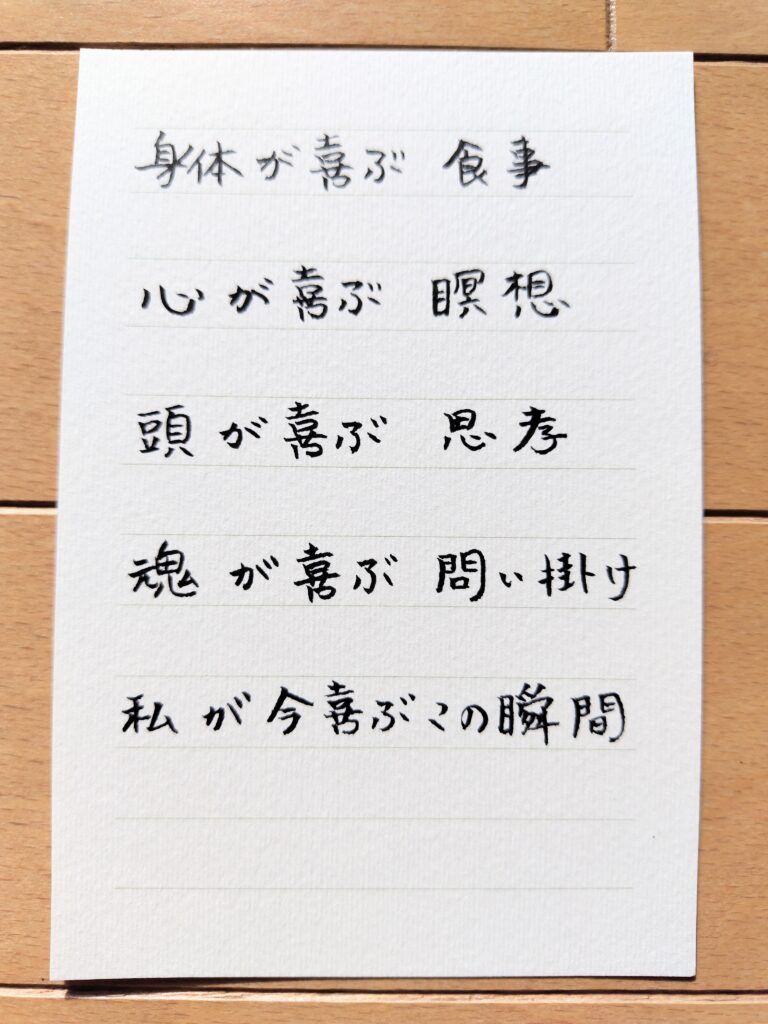 身体が喜ぶ 食事
心が喜ぶ 瞑想
頭が喜ぶ 思考
魂が喜ぶ 問い掛け
私が今喜ぶこの瞬間